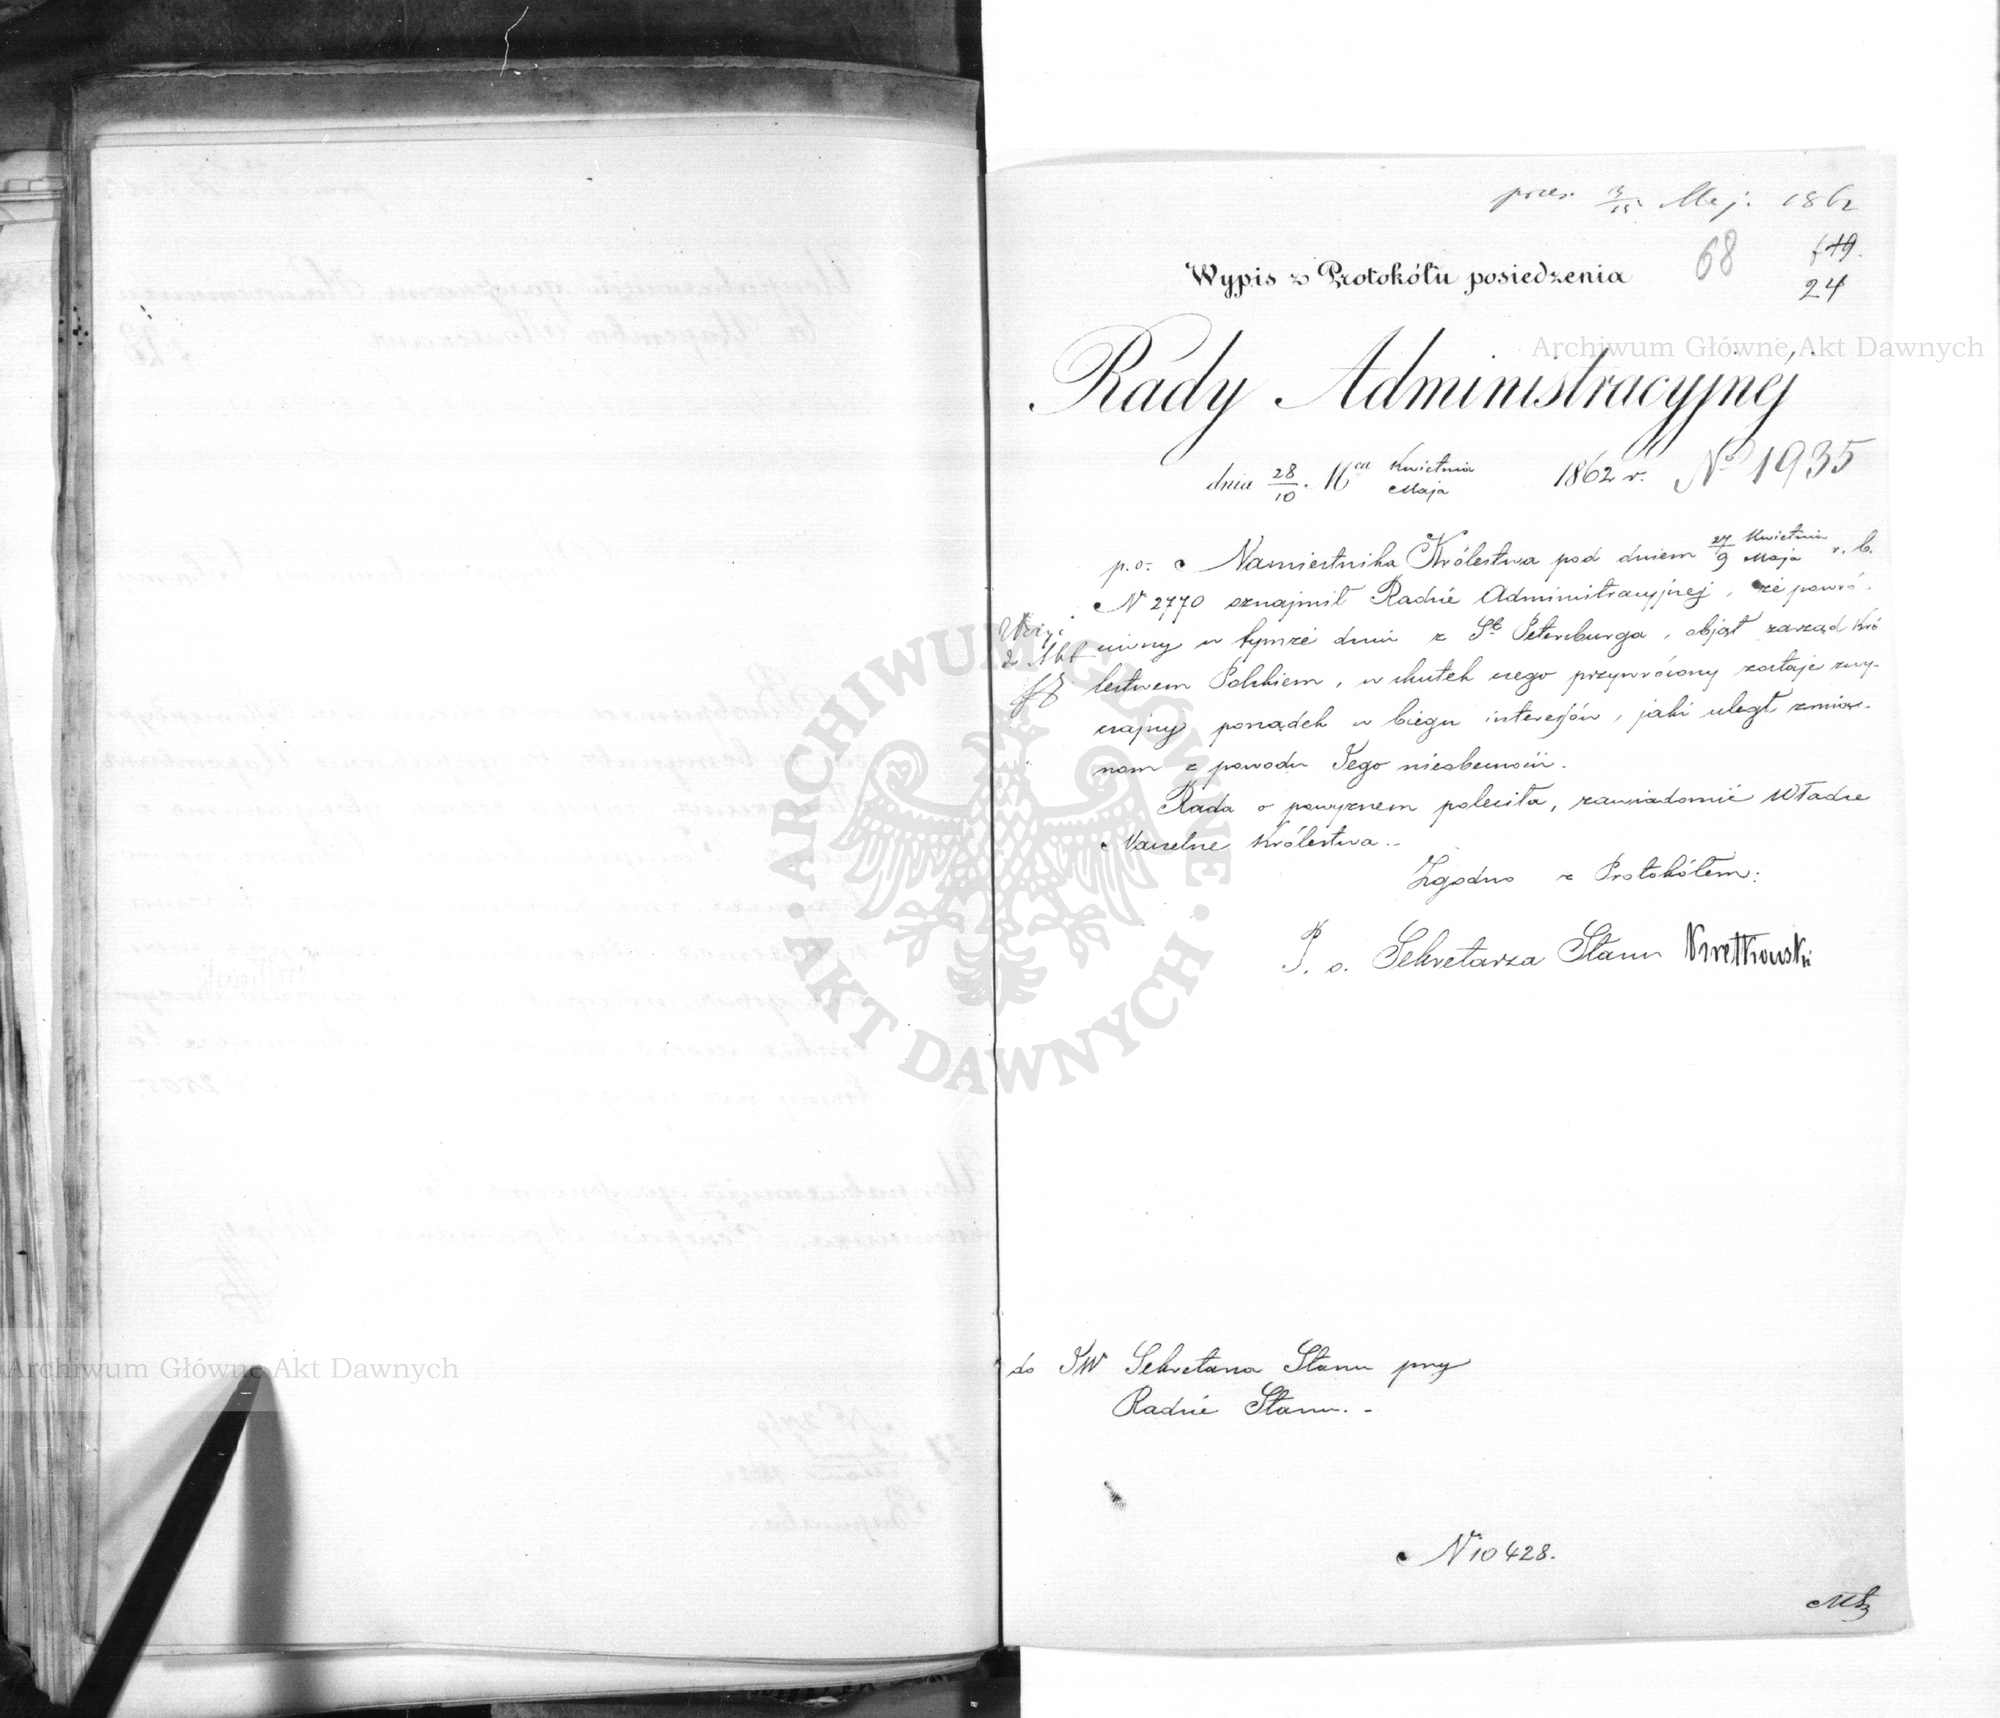 prez. 3/15 Maj. 1862
68
24
Wypis z Protokółu posiedzenia
Rady Administracyjnej
dnia 28/10 Mca Kwietnia/Maja 1862 r. No 1935
p.o. Namiestnika Królestwa pod dniem 27/9 Kwietnia/Maja r. b.
N 2770 oznajmił Radzie Administracyjnej, że powró-
ciwszy w tymże dniu z St Petersburga, objął zarząd Kró
lestwem Polskiem, w skutek czego przywrócony zostaje zwy-
czajny porządek w biegu interesów, jaki uległ zmia-
nom z powodu Jego nieobecności.
Rada o powyższem poleciła, zawiadomić Władze
Naczelne Królestwa.-
Zgodno z Protokółem:
P. o. Sekretarza Stanu Kretkowski
do JW Sekretarza Stanu przy
Radzie Stanu.-
N 10428.
Archiwum Główne Akt Dawnych
Archiwum Główne Akt Dawnych
ARCHIWUM GŁÓWNE · AKT DAWNYCH ·